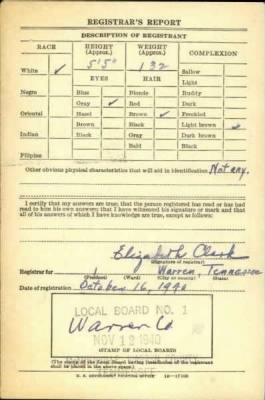 REGISTRAR'S REPORT
DESCRIPTION OF REGISTRANT
RACE HEIGHT (Approx.) WEIGHT (Approx.) COMPLEXION
White ✓ 5'5" 132 Sallow
EYES HAIR Light
Negro Blue Blonde Ruddy
Gray ✓ Red Dark
Oriental Hazel Brown ✓ Freckled
Brown Black Light brown ✓
Indian Black Gray Dark brown
Bald Black
Filipino
Other obvious physical characteristics that will aid in identification Not any.
I certify that my answers are true; that the person registered has read or has had
read to him his own answers; that I have witnessed his signature or mark and that
all of his answers of which I have knowledge are true, except as follows:
Elizabeth Clark
(Signature of registrar)
Registrar for 1 Warren, Tennessee
(Precinct) (Ward) (City or county) (State)
Date of registration October 16, 1940
LOCAL BOARD NO. 1
Warren Co
NOV 12 1940
(STAMP OF LOCAL BOARD)
(The stamp of the Local Board having jurisdiction of the registrant
shall be placed in the above space.)
U. S. GOVERNMENT PRINTING OFFICE